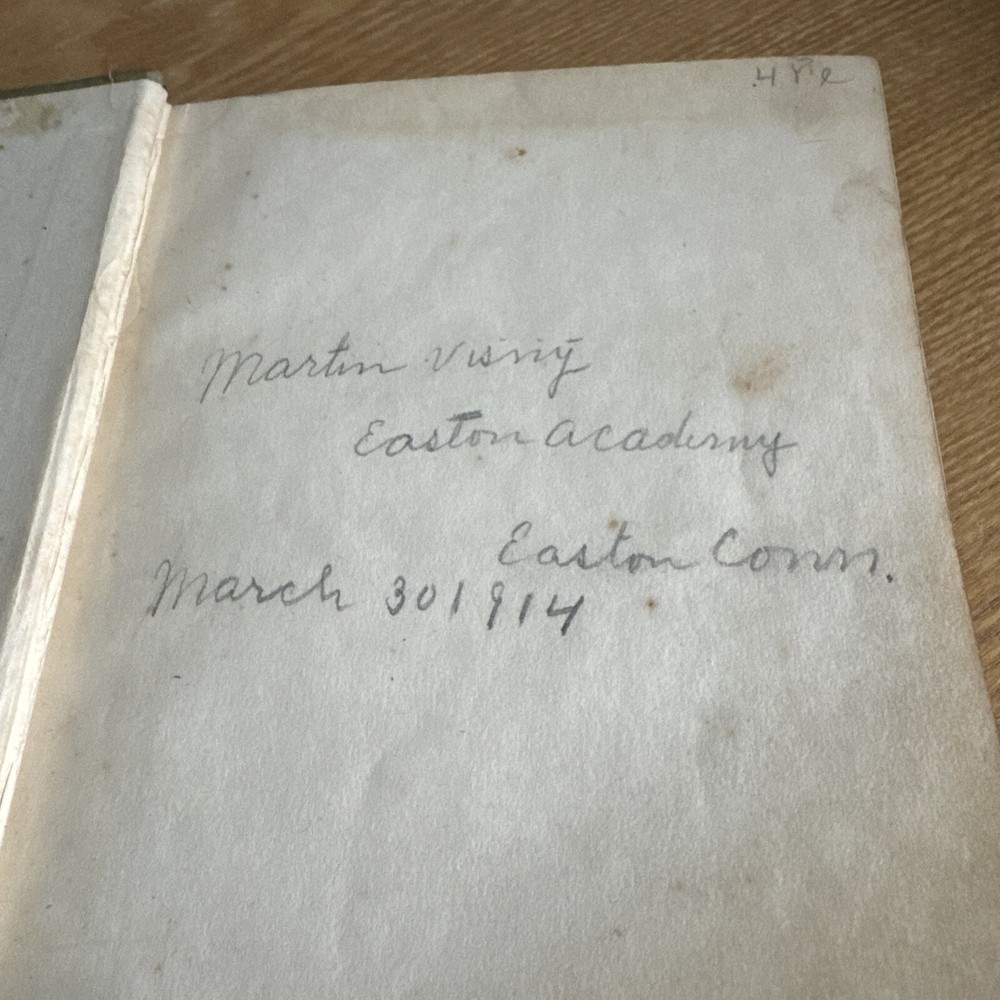 Martin Visnÿ
Easton Academy
Easton Conn.
March 30 1914